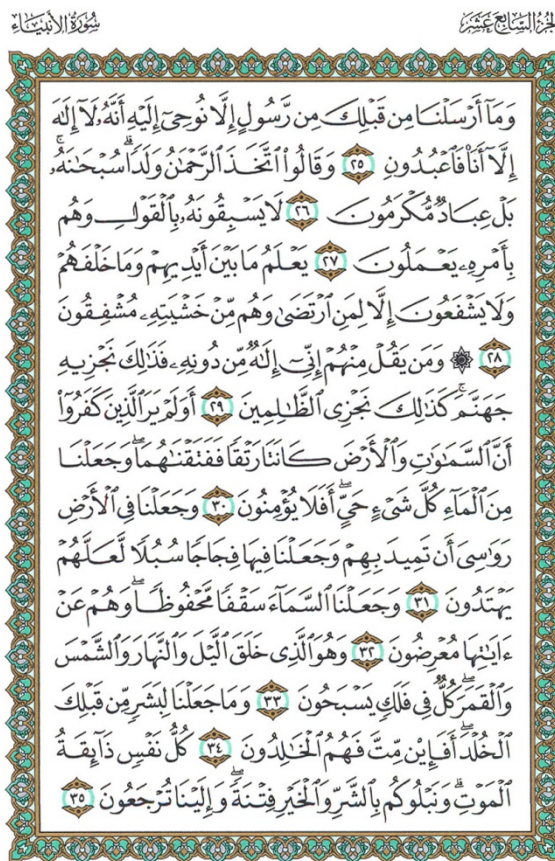 الجزء السابع عشر
سورة الأنبياء
وَمَآ أَرْسَلْنَا مِن قَبْلِكَ مِن رَّسُولٍ إِلَّا نُوحِىٓ إِلَيْهِ أَنَّهُۥ لَآ إِلَٰهَ
إِلَّآ أَنَا۠ فَٱعْبُدُونِ ٢٥ وَقَالُوا۟ ٱتَّخَذَ ٱلرَّحْمَٰنُ وَلَدًا ۗ سُبْحَٰنَهُۥ ۚ
بَلْ عِبَادٌ مُّكْرَمُونَ ٢٦ لَا يَسْبِقُونَهُۥ بِٱلْقَوْلِ وَهُم
بِأَمْرِهِۦ يَعْمَلُونَ ٢٧ يَعْلَمُ مَا بَيْنَ أَيْدِيهِمْ وَمَا خَلْفَهُمْ
وَلَا يَشْفَعُونَ إِلَّا لِمَنِ ٱرْتَضَىٰ وَهُم مِّنْ خَشْيَتِهِۦ مُشْفِقُونَ
٢٨ ۞ وَمَن يَقُلْ مِنْهُمْ إِنِّىٓ إِلَٰهٌ مِّن دُونِهِۦ فَذَٰلِكَ نَجْزِيهِ
جَهَنَّمَ ۚ كَذَٰلِكَ نَجْزِى ٱلظَّٰلِمِينَ ٢٩ أَوَلَمْ يَرَ ٱلَّذِينَ كَفَرُوٓا۟
أَنَّ ٱلسَّمَٰوَٰتِ وَٱلْأَرْضَ كَانَتَا رَتْقًا فَفَتَقْنَٰهُمَا ۖ وَجَعَلْنَا
مِنَ ٱلْمَآءِ كُلَّ شَىْءٍ حَىٍّ ۖ أَفَلَا يُؤْمِنُونَ ٣٠ وَجَعَلْنَا فِى ٱلْأَرْضِ
رَوَٰسِىَ أَن تَمِيدَ بِهِمْ وَجَعَلْنَا فِيهَا فِجَاجًا سُبُلًا لَّعَلَّهُمْ
يَهْتَدُونَ ٣١ وَجَعَلْنَا ٱلسَّمَآءَ سَقْفًا مَّحْفُوظًا ۖ وَهُمْ عَنْ
ءَايَٰتِهَا مُعْرِضُونَ ٣٢ وَهُوَ ٱلَّذِى خَلَقَ ٱلَّيْلَ وَٱلنَّهَارَ وَٱلشَّمْسَ
وَٱلْقَمَرَ ۖ كُلٌّ فِى فَلَكٍ يَسْبَحُونَ ٣٣ وَمَا جَعَلْنَا لِبَشَرٍ مِّن قَبْلِكَ
ٱلْخُلْدَ ۖ أَفَإِي۟ن مِّتَّ فَهُمُ ٱلْخَٰلِدُونَ ٣٤ كُلُّ نَفْسٍ ذَآئِقَةُ
ٱلْمَوْتِ ۗ وَنَبْلُوكُم بِٱلشَّرِّ وَٱلْخَيْرِ فِتْنَةً ۖ وَإِلَيْنَا تُرْجَعُونَ ٣٥